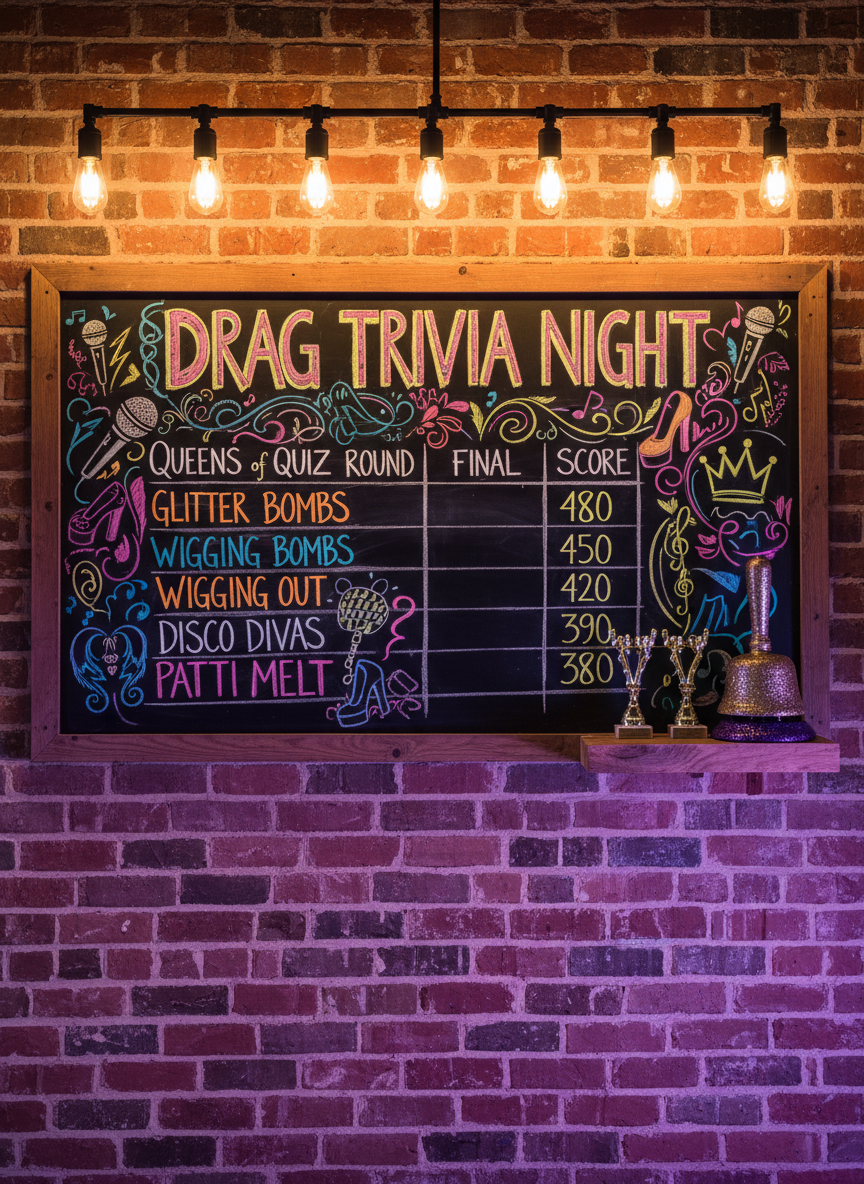 DRAG TRIVIA NIGHT
QUEENS of QUIZ ROUND FINAL SCORE
GLITTER BOMBS 480
WIGGING BOMBS 450
WIGGING OUT 420
DISCO DIVAS 390
PATTI MELT 380